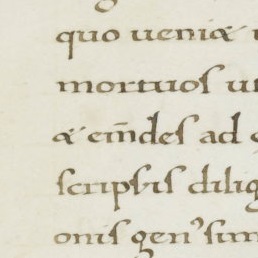 quo ueniæ
mortuos ut
& em̅des ad
scripsis dilig
onis gen⁹ sim